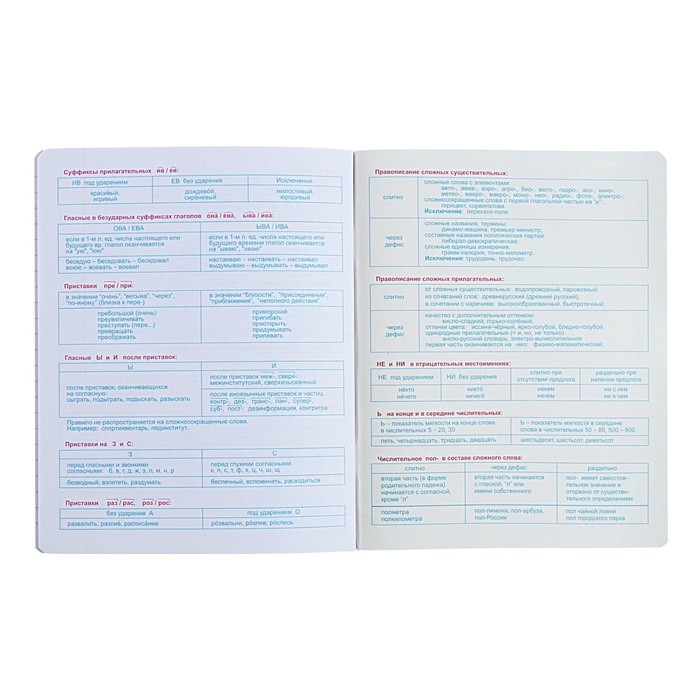 Суффиксы прилагательных ив / ев:
ИВ под ударением ЕВ без ударения Исключения:
краси́вый, дождево́й, милостивый,
игри́вый сире́невый юродивый
Гласные в безударных суффиксах глаголов ова / ева, ыва / ива:
ОВА / ЕВА ЫВА / ИВА
если в 1-м л. ед. числа настоящего или если в 1-м л. ед. числа настоящего или
будущего вр. глагол оканчивается будущего времени глагол оканчивается
на "ую", "юю" на "ываю", "иваю"
беседую – беседовать – беседовал настаиваю – настаивать – настаивал
воюю – воевать – воевал выдумываю – выдумывать – выдумывал
Приставки пре / при:
в значении "очень", "весьма", "через", в значении "близости", "присоединения",
"по-иному" (близка к пере-) "приближения", "неполного действия"
пребольшой (очень) приморский
преувеличивать пригибать
преступать (пере...) приоткрыть
превращать придумывать
преображать привыкать
Гласные Ы и И после приставок:
Ы И
после приставок, оканчивающихся
на согласную:
сыграть, подыграть, подыскать, разыскать
после приставок меж-, сверх-:
межинститутский, сверхизысканный
после иноязычных приставок и частиц
контр-, дез-, транс-, пан-, супер-,
суб-, пост-: дезинформация, контригра
Правило не распространяется на сложносокращенные слова.
Например: спортинвентарь, пединститут.
Приставки на З и С:
З С
перед гласными и звонкими перед глухими согласными:
согласными: б, в, г, д, ж, з, л, м, н, р к, п, с, т, ф, х, ц, ч, ш, щ
безводный, взлететь, раздумать беспечный, вспоминать, расходиться
Приставки раз / рас, роз / рос:
без ударения А под ударением О
развалить, разлив, расписа́ние ро́звальни, ро́злив, ро́спись
Правописание сложных существительных:
слитно
сложные слова с элементами:
авто-, авиа-, аэро-, агро-, био-, вело-, гидро-, зоо-, кино-,
метео-, микро-, макро-, моно-, нео-, радио-, фото-, электро-;
сложносокращенные слова с первой глагольной частью на "и":
горицвет, сорвиголова.
Исключение: перекати-поле.
через
дефис
сложные названия, термины:
динамо-машина, премьер-министр;
составные названия политических партий:
либерал-демократическая;
сложные единицы измерения:
грамм-калория, тонно-километр.
Исключения: трудодень, трудочас.
Правописание сложных прилагательных:
слитно
от сложных существительных: водопроводный, паровозный;
из сочетаний слов: древнерусский (древний русский);
в сочетании с наречием: высокообразованный, быстротечный;
через
дефис
качество с дополнительным оттенком:
кисло-сладкий, горько-солёный;
оттенки цвета: иссиня-чёрный, ярко-голубой, бледно-голубой;
однородные прилагательные (= и, но, не только)
англо-русский словарь, электро-вычислительное
первая часть оканчивается на -ико: физико-математический;
НЕ и НИ в отрицательных местоимениях:
НЕ под ударением НИ без ударения слитно при отсутствии предлога раздельно при наличии предлога
не́кто никто́ некем ни с кем
не́чего ничего́ нечем ни с чем
Ь на конце и в середине числительных:
Ь – показатель мягкости на конце слова Ь – показатель мягкости в середине
в числительных 5 – 20, 30 слова в числительных 50 – 80, 500 – 900
пять, четырнадцать, тридцать, двадцать шестьдесят, шестьсот, девятьсот
Числительное пол- в составе сложного слова:
слитно через дефис раздельно
вторая часть (в форме вторая часть начинается пол- имеет самостоя-
родительного падежа) с гласной, "л" или тельное значение и
начинается с согласной, имени собственного оторвано от существи-
кроме "л" тельного определением
полметра пол-лимона, пол-арбуза, пол чайной ложки
полкилометра пол-России пол городского парка